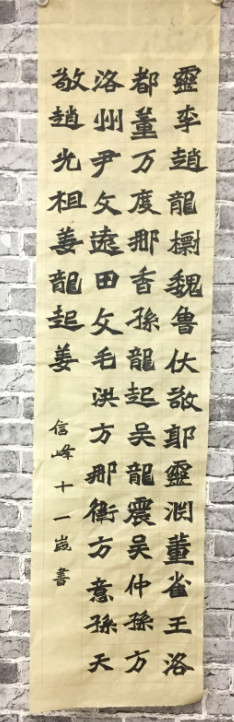 靈李趙龍魏魯伏敬靈渊董雀王洛
都董万度那香孫龍起吴龍震吴仲孫方
洛州尹文遠田文毛洪方那衛方意孫天
敬趙光祖姜龍起姜
信峰十一歲書